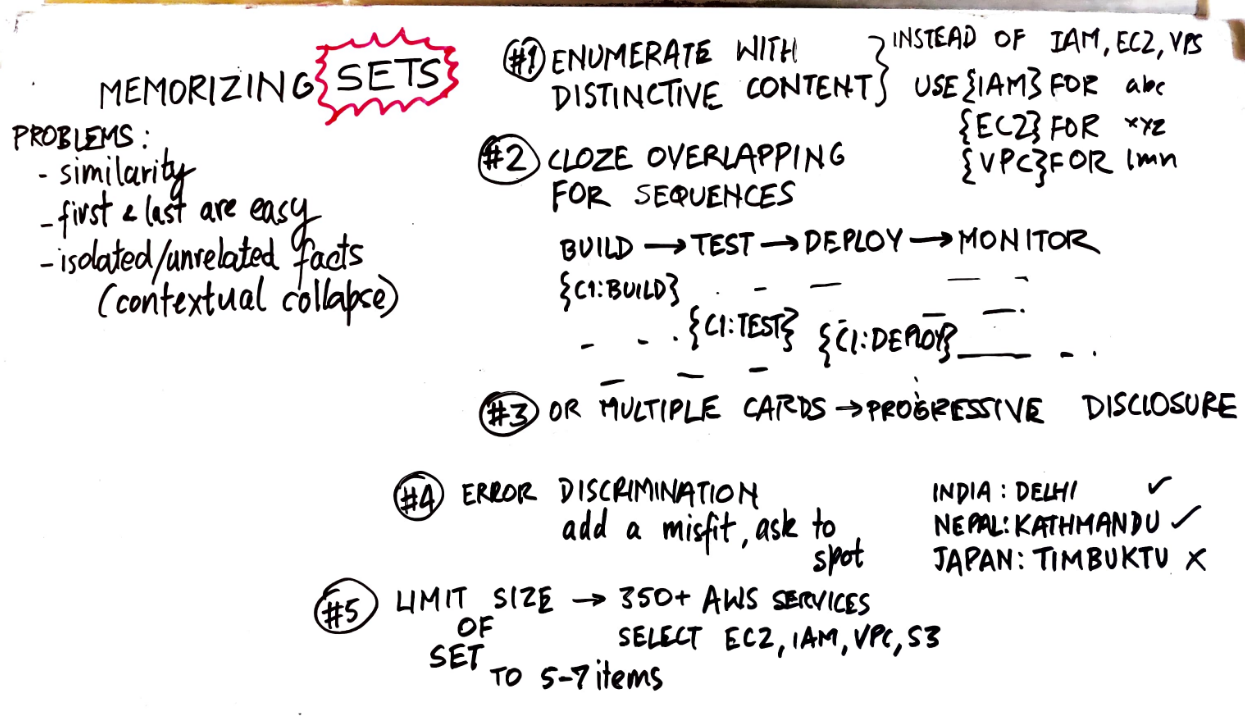 MEMORIZING SETS
PROBLEMS:
- similarity
- first & last are easy
- isolated/unrelated facts
(contextual collapse)
#1 ENUMERATE WITH
DISTINCTIVE CONTENT
INSTEAD OF IAM, EC2, VPS
USE {IAM} FOR abc
{EC2} FOR xyz
{VPC} FOR lmn
#2 CLOZE OVERLAPPING
FOR SEQUENCES
BUILD → TEST → DEPLOY → MONITOR
{C1:BUILD}
{C1:TEST} {C1:DEPLOY}
#3 OR MULTIPLE CARDS → PROGRESSIVE DISCLOSURE
#4 ERROR DISCRIMINATION
add a misfit, ask to
spot
INDIA : DELHI ✓
NEPAL: KATHMANDU ✓
JAPAN: TIMBUKTU ✗
#5 LIMIT SIZE → 350+ AWS SERVICES
OF
SET
TO 5-7 items
SELECT EC2, IAM, VPC, S3